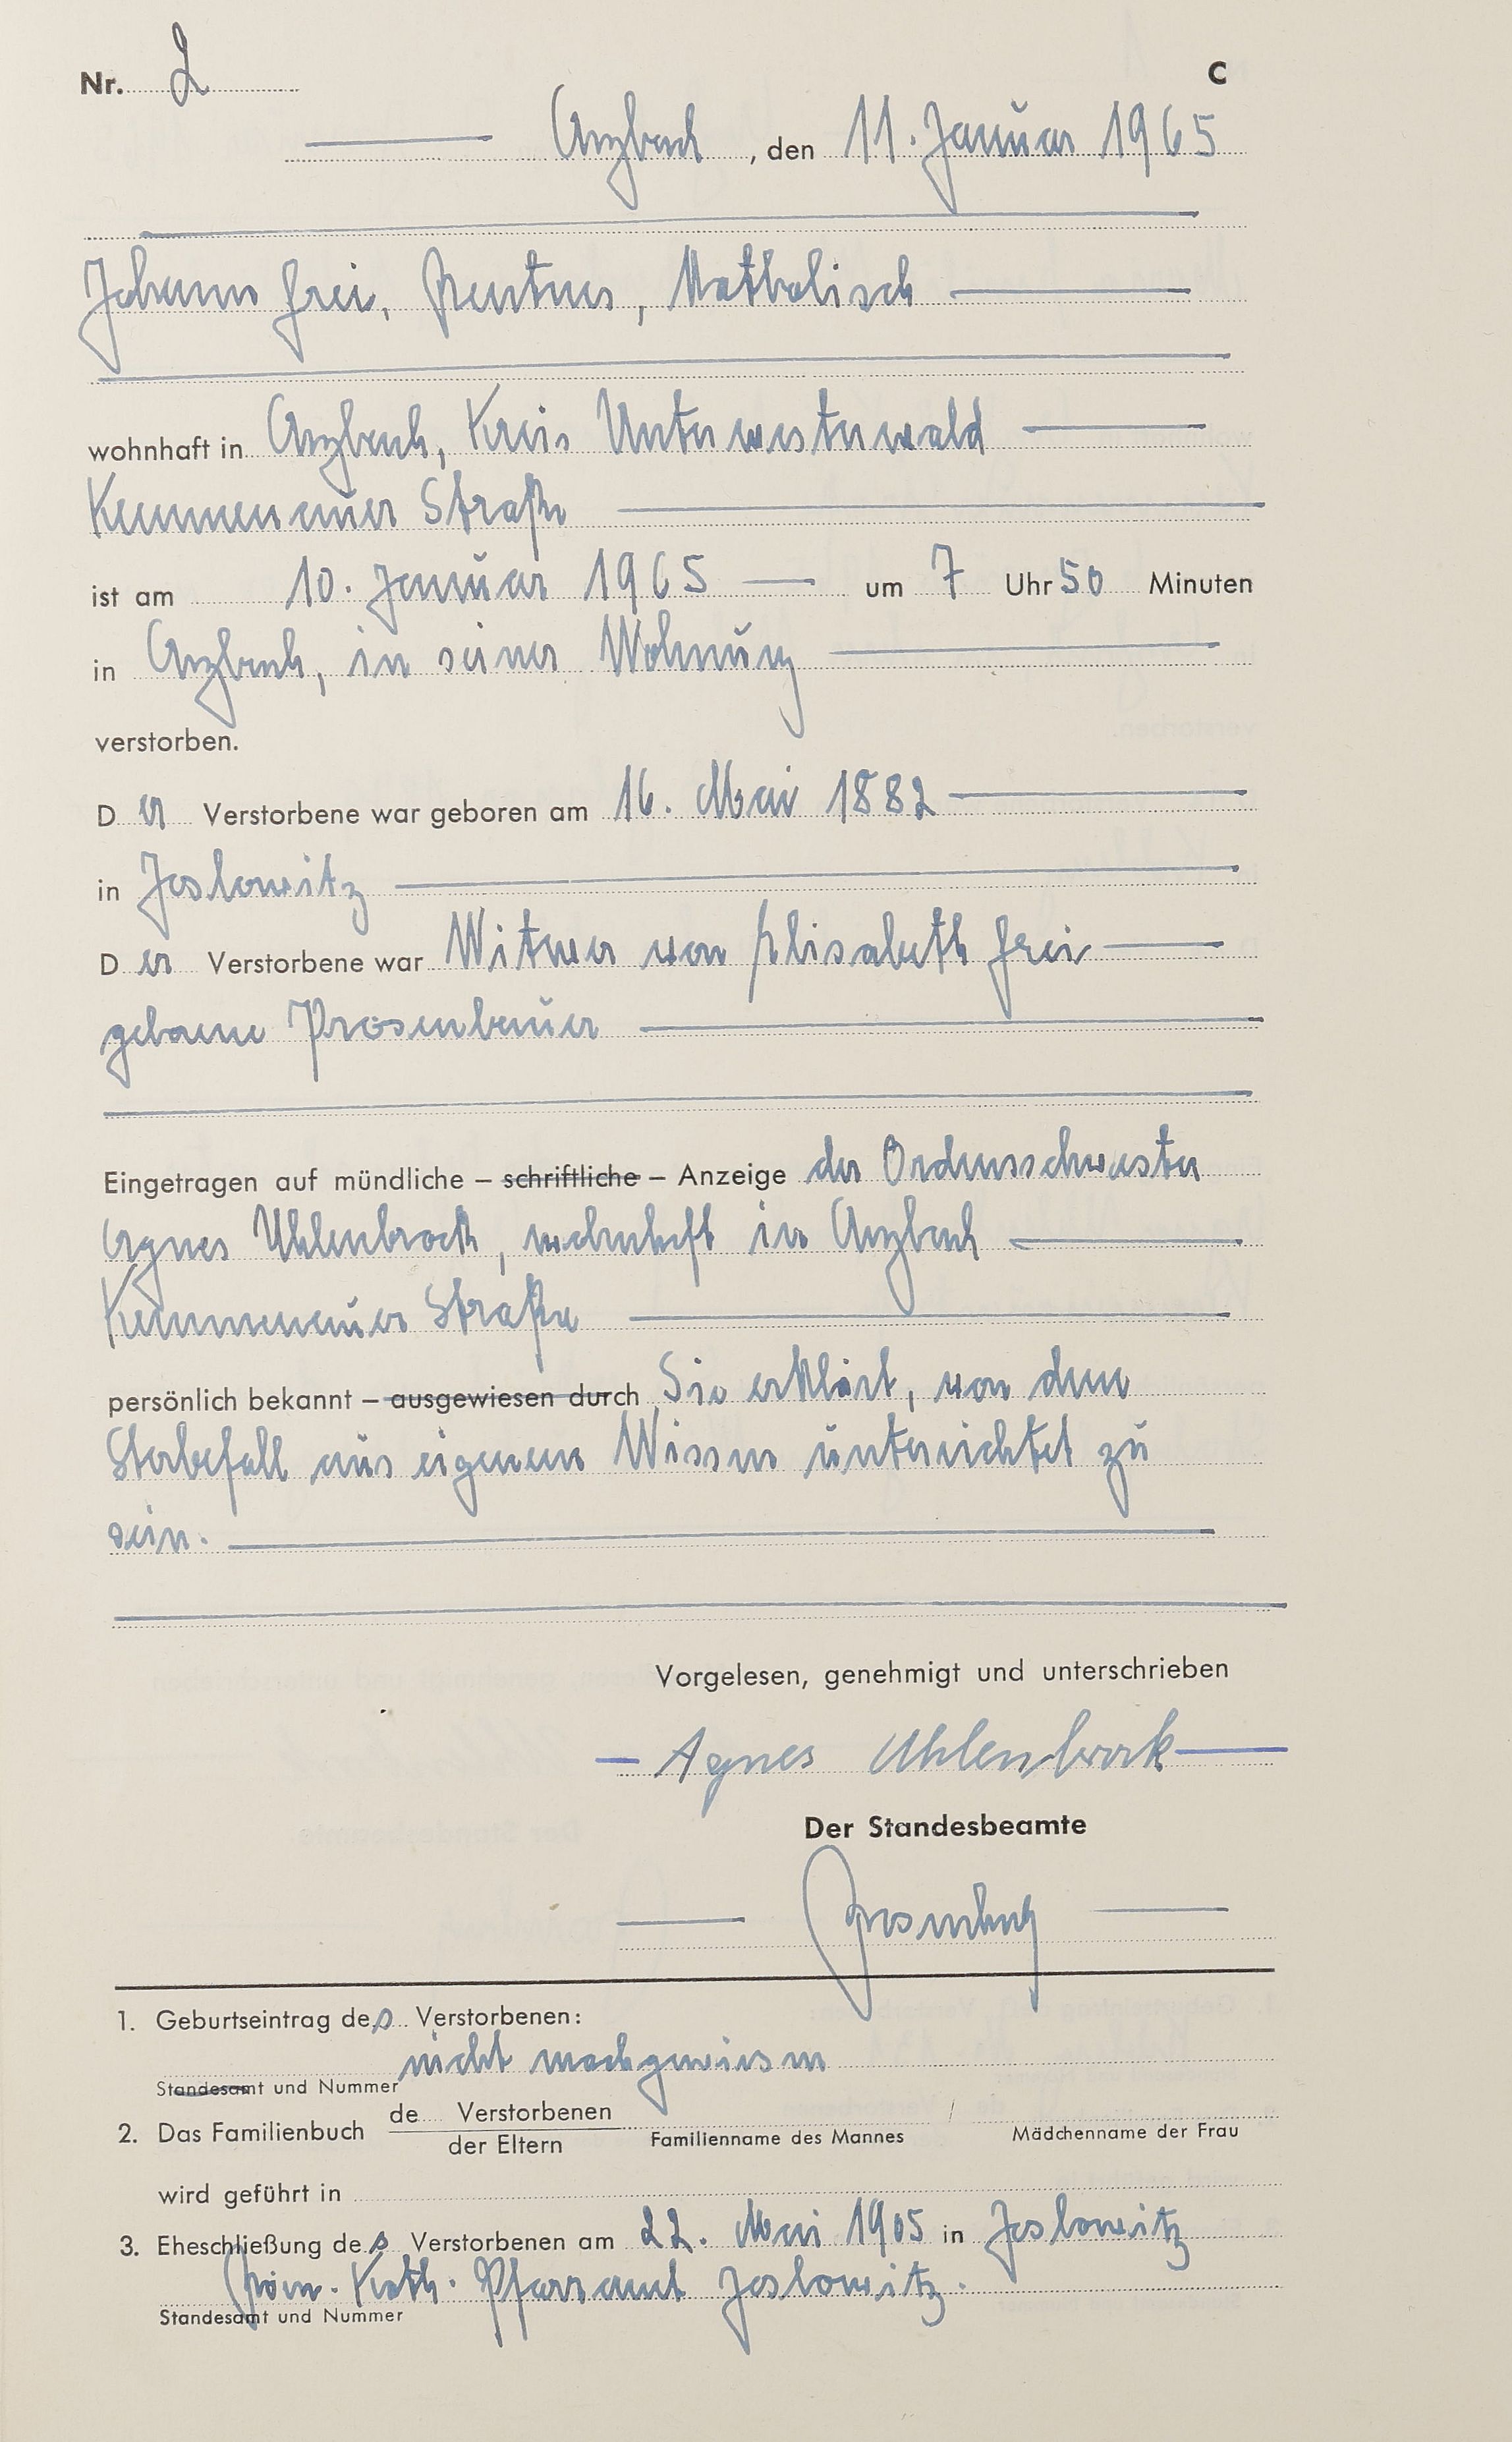 Nr. 2
C
Arzbach, den 11. Januar 1965
Johann Frei, Rentner, Katholisch
wohnhaft in Arzbach, Kreis Unterwesterwald
Kemmenauer Straße
ist am 10. Januar 1965 um 7 Uhr 50 Minuten
in Arzbach, in seiner Wohnung
verstorben.
D er Verstorbene war geboren am 16. Mai 1882
in Joslowitz
D er Verstorbene war Witwer von Elisabeth Frei
geborene Prosenbauer
Eingetragen auf mündliche – schriftliche – Anzeige der Ordensschwester
Agnes Uhlenbrock, wohnhaft in Arzbach
Kemmenauer Straße
persönlich bekannt – ausgewiesen durch Sie erklärt, von dem
Sterbefall aus eigenem Wissen unterrichtet zu
sein.
Vorgelesen, genehmigt und unterschrieben
Agnes Uhlenbrock
Der Standesbeamte
1. Geburtseintrag des Verstorbenen:
nicht nachgewiesen
Standesamt und Nummer
2. Das Familienbuch de Verstorbenen
der Eltern
Familienname des Mannes Mädchenname der Frau
wird geführt in
3. Eheschließung des Verstorbenen am 22. Mai 1905 in Joslowitz
Röm. Kath. Pfarramt Joslowitz.
Standesamt und Nummer